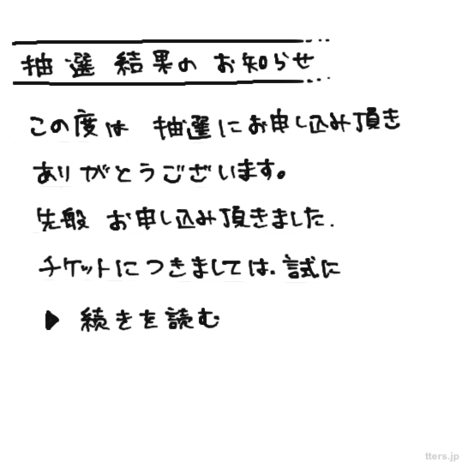 抽選結果のお知らせ
この度は 抽選にお申し込み頂き
ありがとうございます。
先般 お申し込み頂きました.
チケットにつきましては、試に
▶ 続きを読む
tters.jp